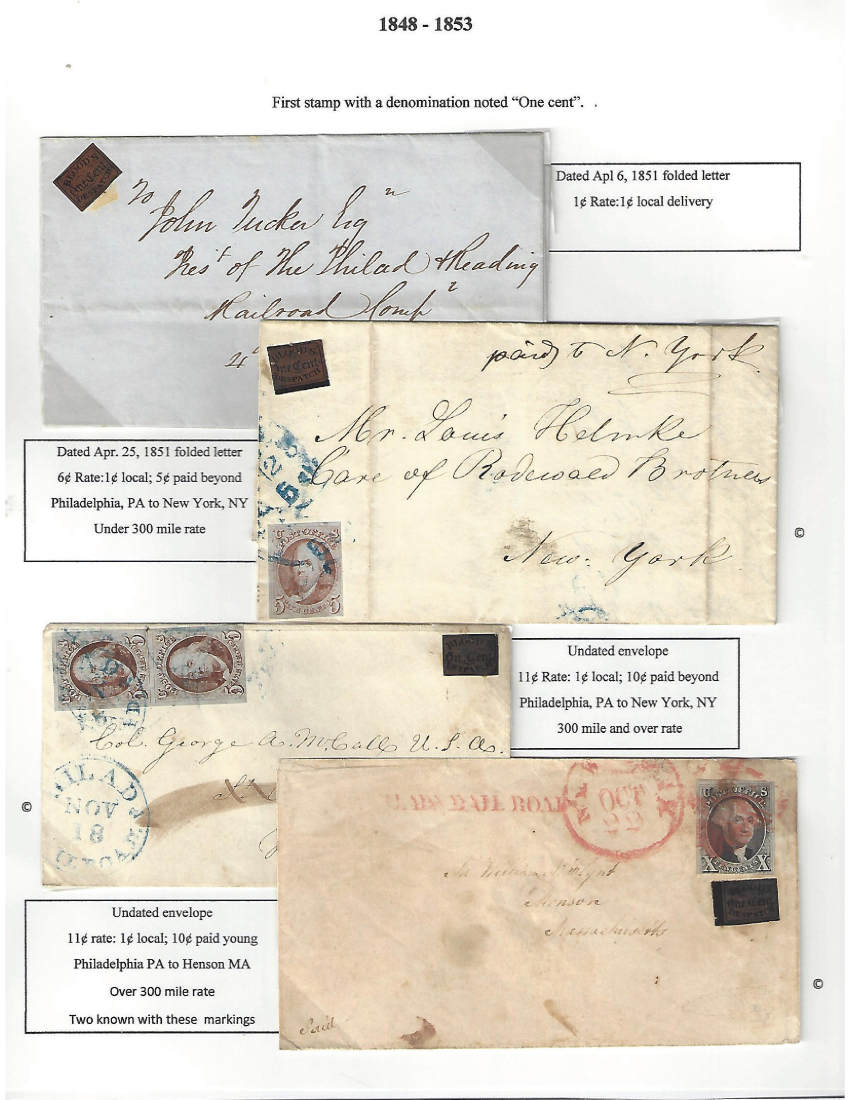 1848 - 1853
First stamp with a denomination noted “One cent”.
BLOOD'S
One Cent
DESPATCH
To
John Tucker Esq
Pres't of the Philad & Reading
Railroad Comp
Dated Apl 6, 1851 folded letter
1¢ Rate:1¢ local delivery
BLOOD'S
One Cent
DESPATCH
paid to N. York
Mr. Louis Helmke
Care of Rodewald Brothers
New York
5
POST OFFICE
5
Dated Apr. 25, 1851 folded letter
6¢ Rate:1¢ local; 5¢ paid beyond
Philadelphia, PA to New York, NY
Under 300 mile rate
©
POST OFFICE
POST OFFICE
BLOOD'S
One Cent
DESPATCH
Col. George A. McCall U.S.A.
PHILADA
NOV
18
Undated envelope
11¢ Rate: 1¢ local; 10¢ paid beyond
Philadelphia, PA to New York, NY
300 mile and over rate
©
RAIL ROAD
OCT
22
U S
POST OFFICE
X X
BLOOD'S
One Cent
DESPATCH
Monson
Massachusetts
Paid
Undated envelope
11¢ rate: 1¢ local; 10¢ paid young
Philadelphia PA to Henson MA
Over 300 mile rate
Two known with these markings
©